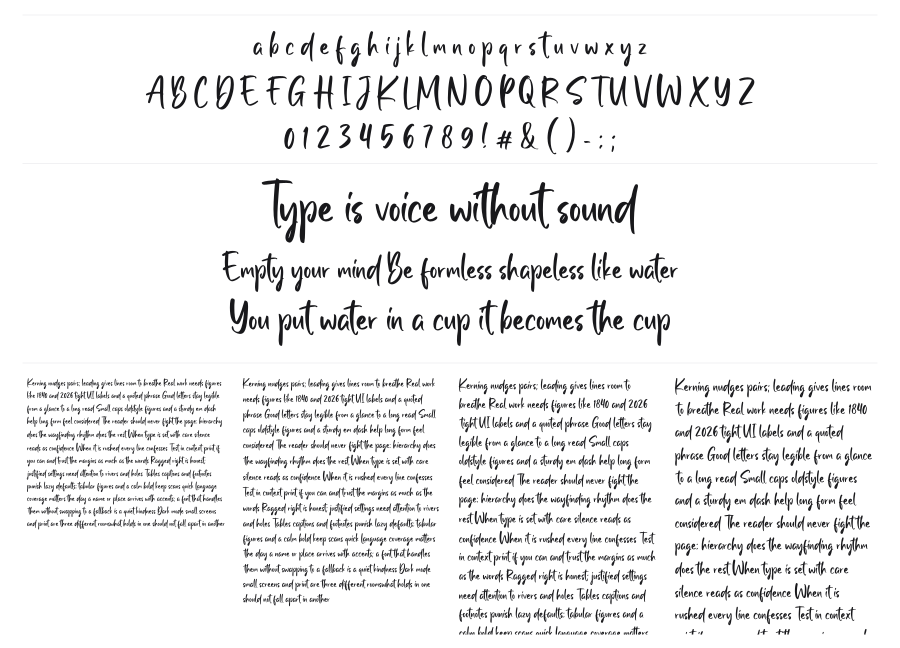 a b c d e f g h i j k l m n o p q r s t u v w x y z
A B C D E F G H I J K L M N O P Q R S T U V W X Y Z
0 1 2 3 4 5 6 7 8 9 ! # & ( ) - : ;
Type is voice without sound
Empty your mind Be formless shapeless like water
You put water in a cup it becomes the cup
Kerning nudges pairs; leading gives lines room to breathe Real work needs figures
like 1840 and 2026 tight UI labels and a quoted phrase Good letters stay legible
from a glance to a long read Small caps oldstyle figures and a sturdy em dash
help long form feel considered The reader should never fight the page: hierarchy
does the wayfinding rhythm does the rest When type is set with care silence
reads as confidence When it is rushed every line confesses Test in context print if
you can and trust the margins as much as the words Ragged right is honest;
justified settings need attention to rivers and holes Tables captions and footnotes
punish lazy defaults: tabular figures and a calm bold keep scans quick language
coverage matters the day a name or place arrives with accents; a font that handles
them without swapping to a fallback is a quiet kindness Dark mode small screens
and print are three different rooms what holds in one should not fall apart in another
Kerning nudges pairs; leading gives lines room to breathe Real work
needs figures like 1840 and 2026 tight UI labels and a quoted
phrase Good letters stay legible from a glance to a long read Small
caps oldstyle figures and a sturdy em dash help long form feel
considered The reader should never fight the page: hierarchy does
the wayfinding rhythm does the rest When type is set with care
silence reads as confidence When it is rushed every line confesses
Test in context print if you can and trust the margins as much as the
words Ragged right is honest; justified settings need attention to rivers
and holes Tables captions and footnotes punish lazy defaults: tabular
figures and a calm bold keep scans quick language coverage matters
the day a name or place arrives with accents; a font that handles
them without swapping to a fallback is a quiet kindness Dark mode
small screens and print are three different rooms what holds in one
should not fall apart in another
Kerning nudges pairs; leading gives lines room to
breathe Real work needs figures like 1840 and 2026
tight UI labels and a quoted phrase Good letters stay
legible from a glance to a long read Small caps
oldstyle figures and a sturdy em dash help long form
feel considered The reader should never fight the
page: hierarchy does the wayfinding rhythm does the
rest When type is set with care silence reads as
confidence When it is rushed every line confesses Test
in context print if you can and trust the margins as much
as the words Ragged right is honest; justified settings
need attention to rivers and holes Tables captions and
footnotes punish lazy defaults: tabular figures and a
calm bold keep scans quick language coverage matters
Kerning nudges pairs; leading gives lines room
to breathe Real work needs figures like 1840
and 2026 tight UI labels and a quoted
phrase Good letters stay legible from a glance
to a long read Small caps oldstyle figures
and a sturdy em dash help long form feel
considered The reader should never fight the
page: hierarchy does the wayfinding rhythm
does the rest When type is set with care
silence reads as confidence When it is
rushed every line confesses Test in context